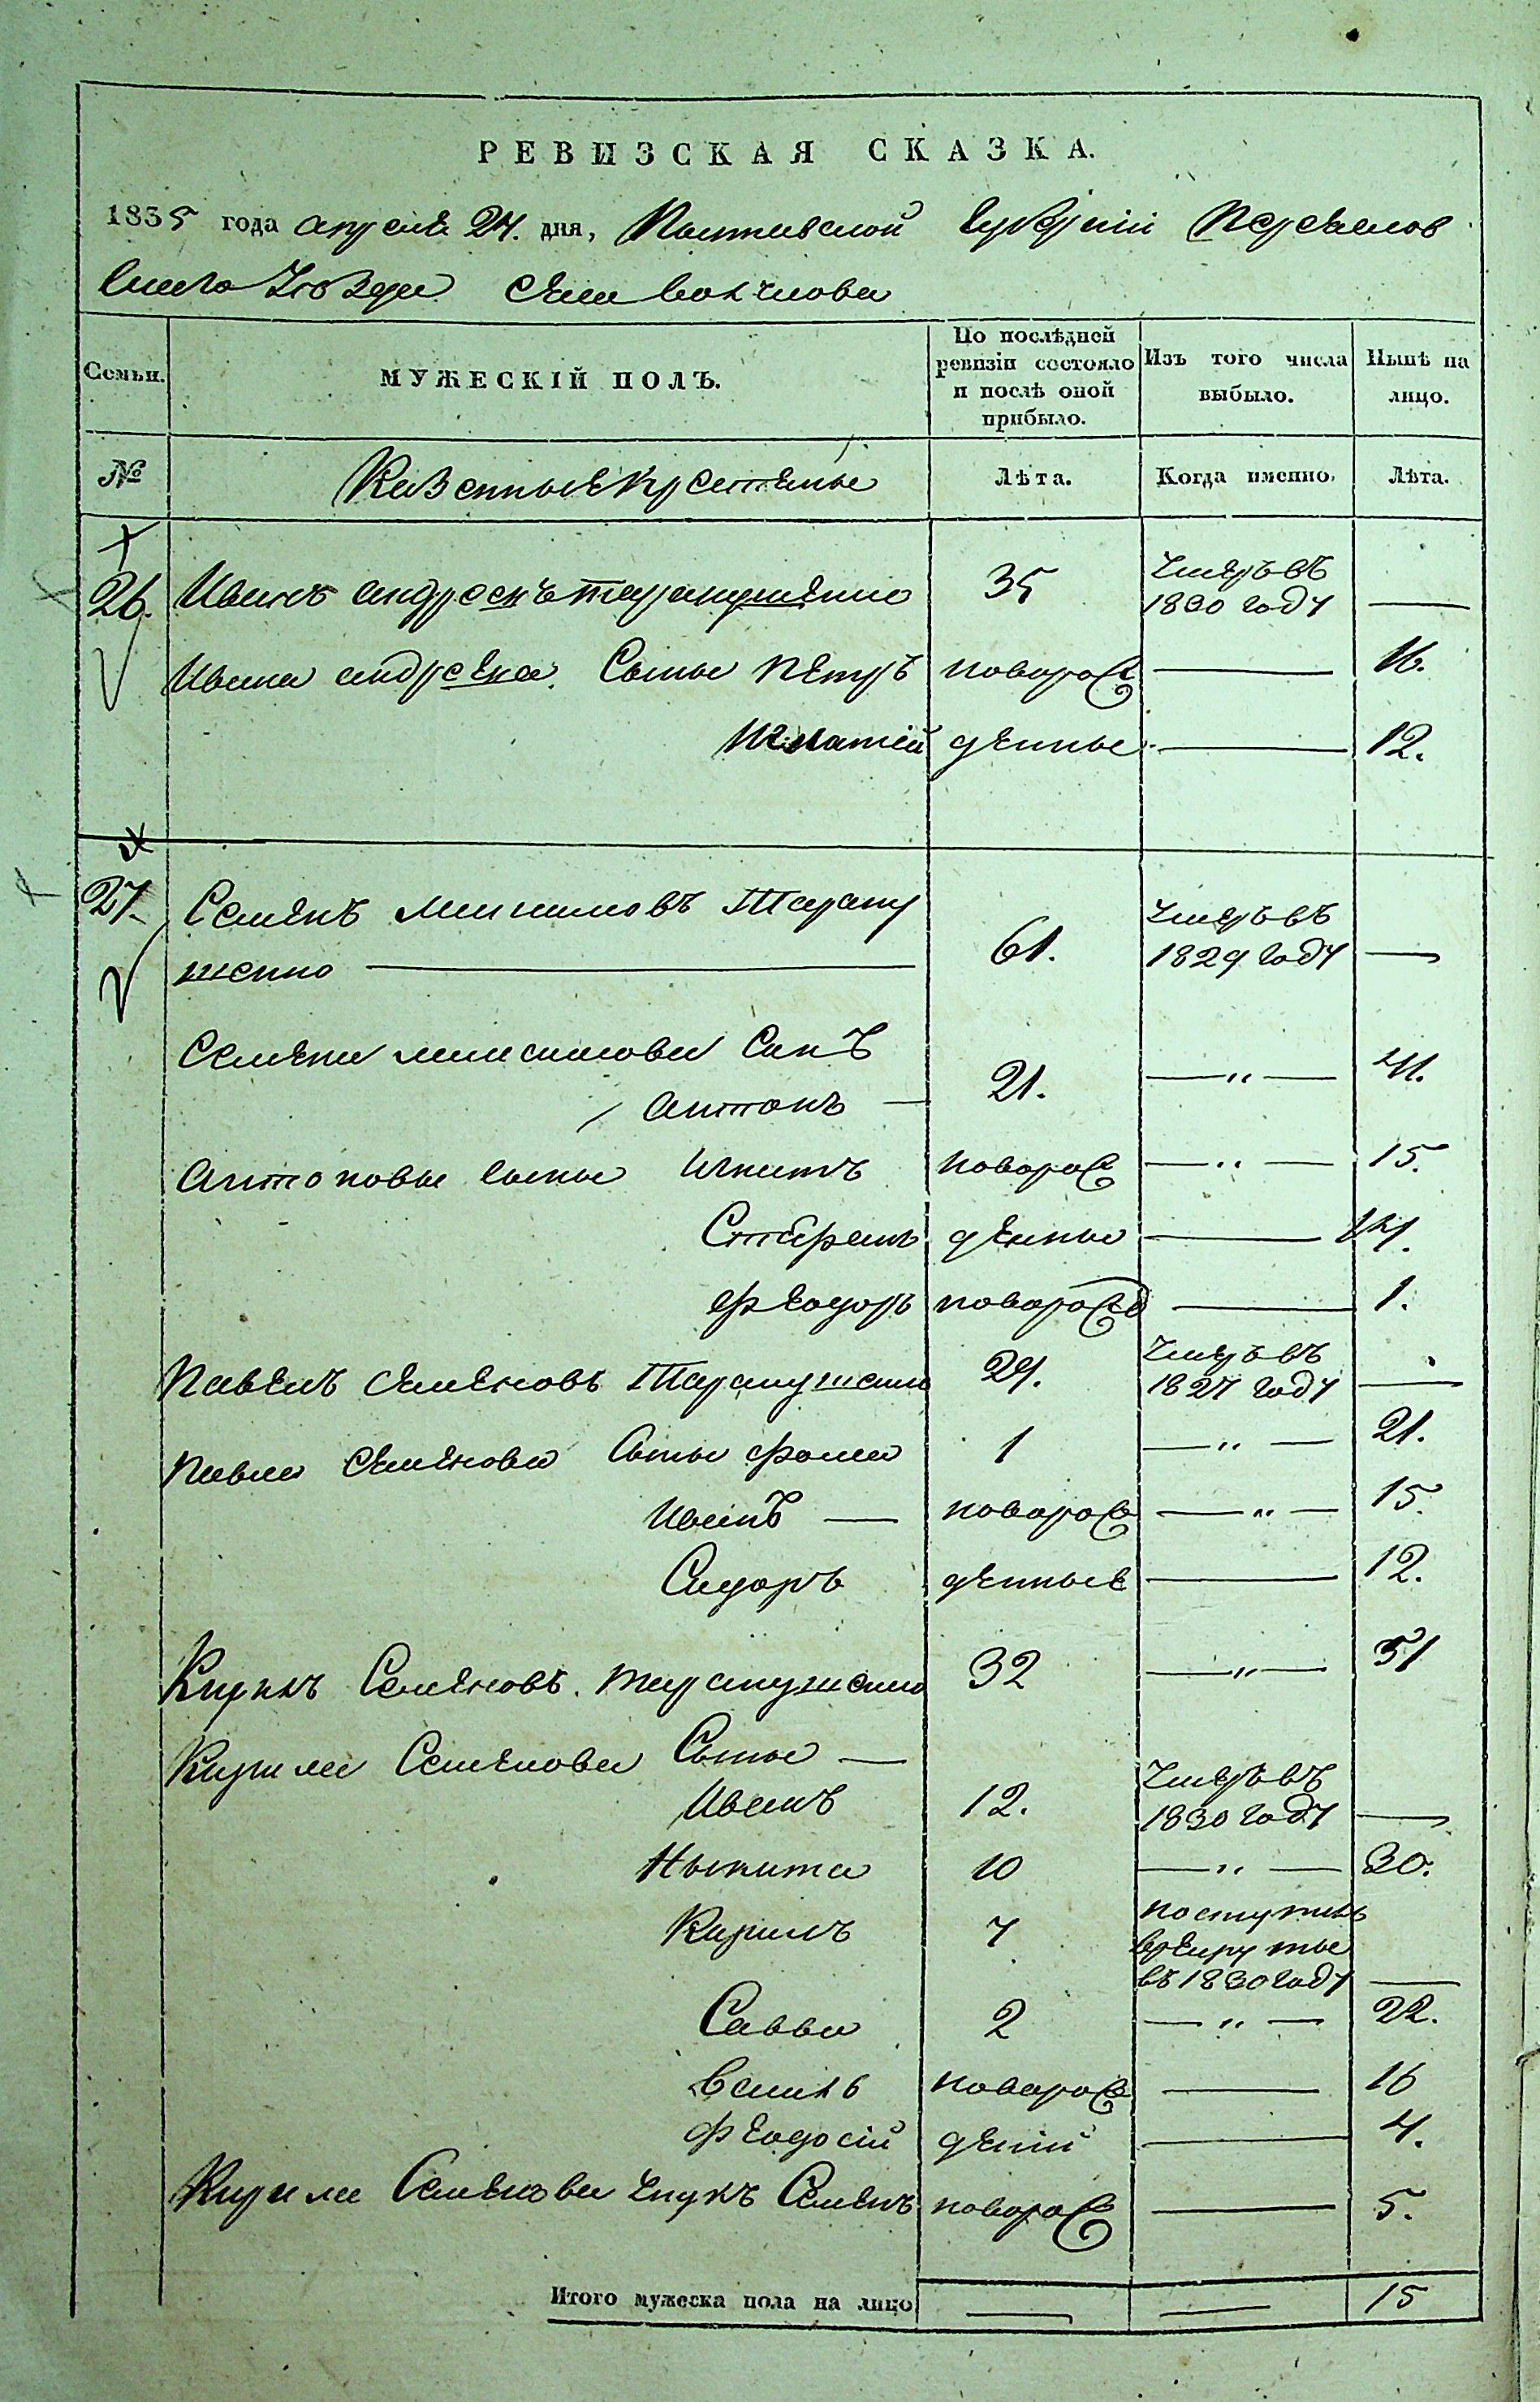 РЕВИЗСКАЯ СКАЗКА.
1835 года апреля 24. дня, Полтавской Губерніи Переяслов
скаго Уѣзда села
Семьи. МУЖЕСКІЙ ПОЛЪ. По послѣдней ревизіи состояло и послѣ оной прибыло. Изъ того числа выбыло. Нынѣ на лицо.
№ Казенные Крестьяне Лѣта. Когда именно. Лѣта.
26. Иванъ андреевъ Таранушенко 35 Умеръ въ 1830 году —
Ивана андреева Сыны Петръ новорож 16.
Игнатій денные — 12.
27. Семенъ Максимовъ Тарану
шенко — 61. Умеръ въ 1829 году —
Семена максимова Сынъ
антонъ — 21. — " — 41.
антоновы сыны Игнатъ новорож — " — 15.
Стефанъ денные — 14.
Феодоръ новорож — 1.
Павелъ Семеновъ Таранушенко 29. Умеръ въ 1827 году —
Павла Семенова Сыны Фома 1 — " — 21.
Иванъ — новорож — " — 15.
Сидоръ денные — 12.
Кирилъ Семеновъ. Таранушенко 32 — " — 51
Кирила Семенова Сыны —
Иванъ 12. Умеръ въ 1830 году —
Никита 10 — " — 30.
Кирилъ 7 поступилъ
в рекруты
въ 1830 году —
Савва 2 — " — 22.
Василь новорож — 16
Феодосій деній — 4.
Кирила Семенова внукъ Семенъ новорож — 5.
Итого мужеска пола на лицо — — 15